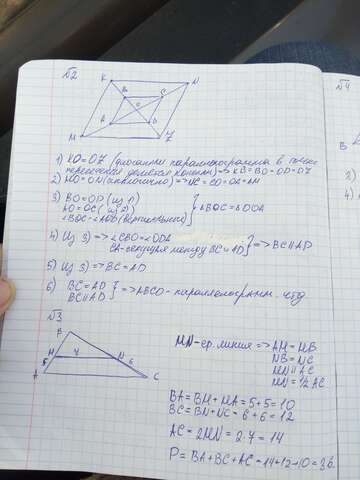 √2
K N
B C
O
A D
M Z
1) KO=OZ (диагонали параллелограмма в точке
пересечения делятся пополам) => KB=BO=OD=DZ
2) MO=ON (аналогично) => NC=CO=OA=AM
3) BO=OD (из 1)
AO=OC (из 2)
∠BOC=∠AOD (вертикальные) } ΔBOC=ΔDOA
4) Из 3) => ∠CBO=∠ODA
CA-секущая между BC и AD } => BC||AD
5) Из 3) => BC=AD
6) BC=AD
BC||AD } => ABCD-параллелограмм. чтд
√3
B
M 7 N
5 6
A C
MN-ср. линия => AM=MB
NB=NC
MN||AC
MN=1/2AC
BA=BM+MA=5+5=10
BC=BN+NC=6+6=12
AC=2MN=2·7=14
P=BA+BC+AC=14+12+10=36
√4
B
2)
4)